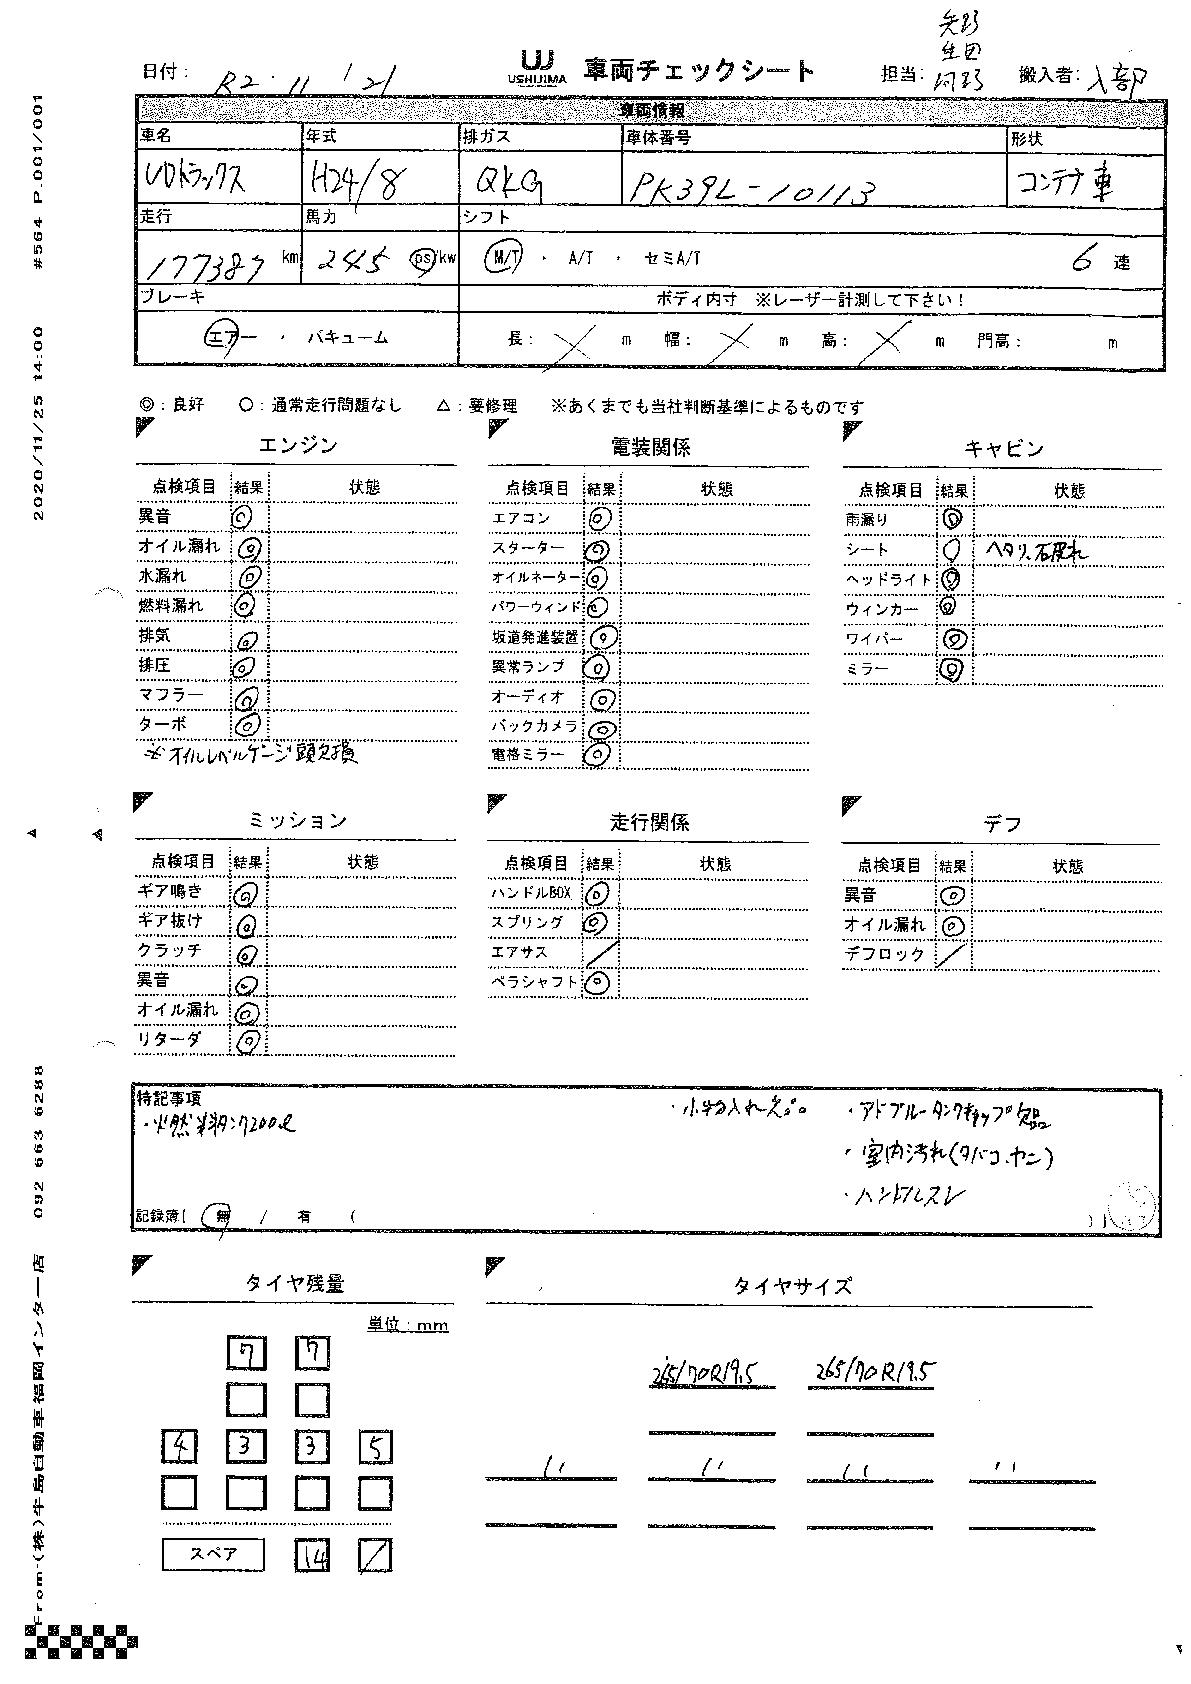 矢野
生田
日付： R2・11／21 UJ USHIJIMA 車両チェックシート 担当： 河野 搬入者：入部
車両情報
車名 年式 排ガス 車体番号 形状
UDトラックス H24/8 QKG PK39L-10113 コンテナ車
走行 馬力 シフト
177387 km 245 ps/kw M/T ・ A/T ・ セミA/T 6 速
ブレーキ ボディ内寸 ※レーザー計測して下さい！
エアー ・ バキューム 長： ╳ m 幅： ╳ m 高： ╳ m 門高： m
◎：良好 ○：通常走行問題なし △：要修理 ※あくまでも当社判断基準によるものです
エンジン
点検項目 結果 状態
異音 ◎
オイル漏れ ◎
水漏れ ◎
燃料漏れ ◎
排気 ◎
排圧 ◎
マフラー ◎
ターボ ◎
※オイルレベルゲージ頭欠損
電装関係
点検項目 結果 状態
エアコン ◎
スターター ◎
オイルネーター ◎
パワーウィンド ◎
坂道発進装置 ◎
異常ランプ ◎
オーディオ ◎
バックカメラ ◎
電格ミラー ◎
キャビン
点検項目 結果 状態
雨漏り ◎
シート ○ ヘタリ、破れ
ヘッドライト ◎
ウィンカー ◎
ワイパー ◎
ミラー ◎
ミッション
点検項目 結果 状態
ギア鳴き ◎
ギア抜け ◎
クラッチ ◎
異音 ◎
オイル漏れ ◎
リターダ ◎
走行関係
点検項目 結果 状態
ハンドルBOX ◎
スプリング ◎
エアサス ／
ペラシャフト ◎
デフ
点検項目 結果 状態
異音 ◎
オイル漏れ ◎
デフロック ／
特記事項
・燃料タンク200ℓ
・小物入れ欠品
・アドブルータンクキャップ欠品
・室内汚れ(タバコ、ヤニ)
・ハンドルスレ
記録簿( 無 / 有 (
タイヤ残量
単位：mm
7 7
4 3 3 5
スペア 14 ／
タイヤサイズ
265/70R19.5 265/70R19.5
〃 〃 〃 〃
From:(株)牛島自動車福岡インター店 092 663 6288 2020/11/25 14:00 #564 P.001/001